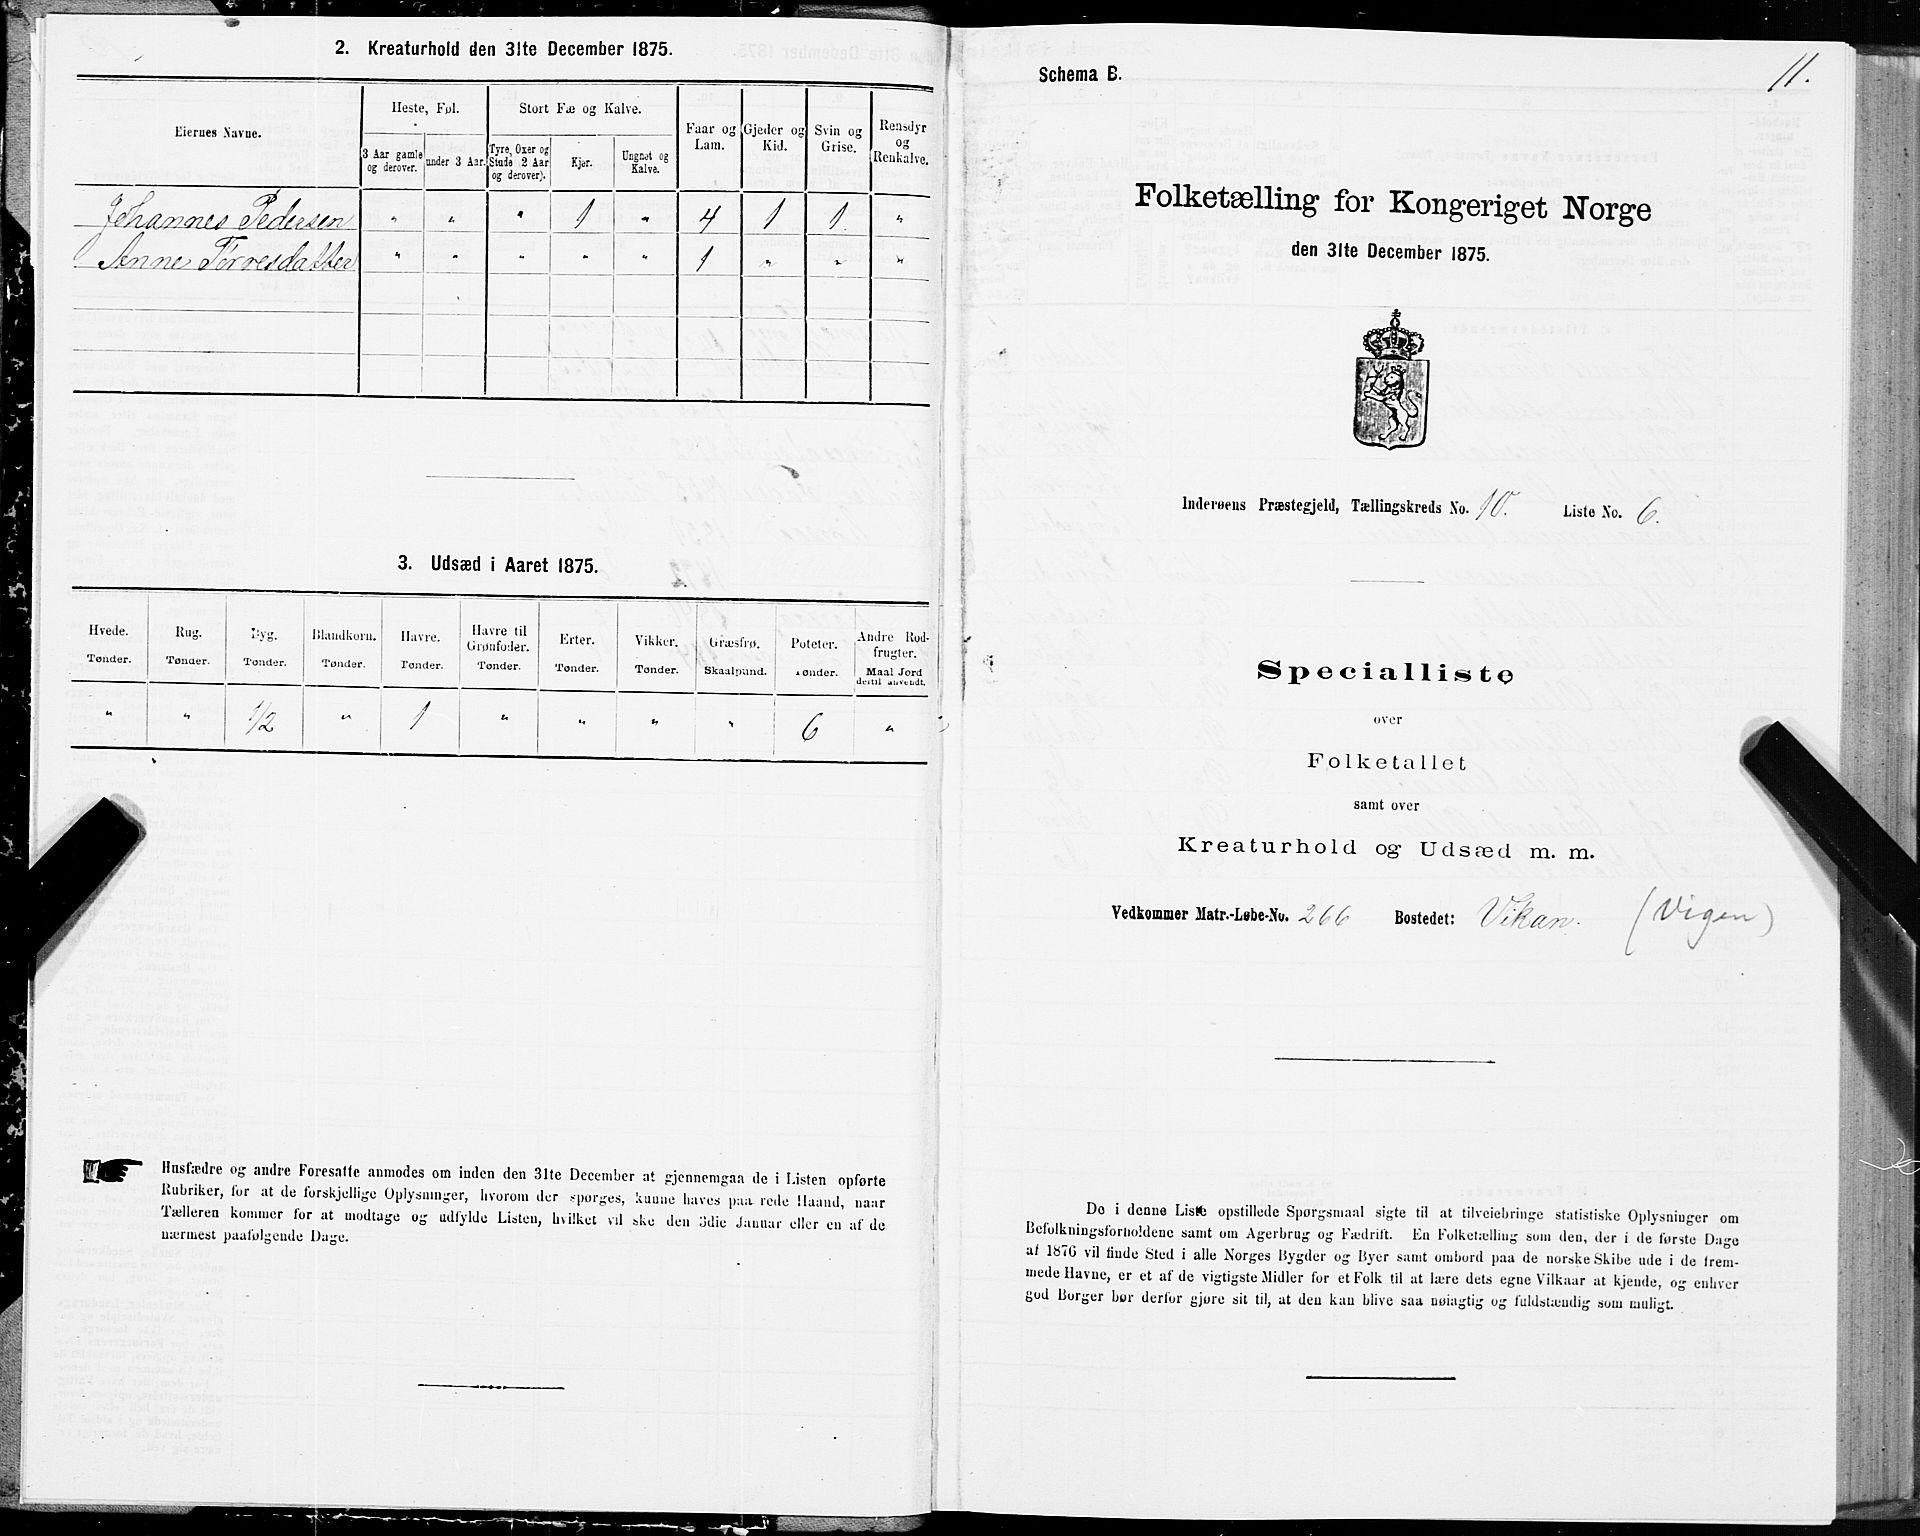 2. Kreaturhold den 31te December 1875.
Eiernes Navne.
Heste, Føl.
Stort Fæ og Kalve.
Faar og Lam.
Gjeder og Kid.
Svin og Grise.
Rensdyr og Renkalve.
3 Aar gamle og derover.
under 3 Aar.
Tyre, Oxer og Stude (2 Aar og derover).
Kjør.
Ungnøt og Kalve.
Johannes Pedersen " " " 1 " 4 1 1 "
Anne Torresdatter " " " " " 1 " " "
3. Udsæd i Aaret 1875.
Hvede. Rug. Byg. Blandkorn. Havre. Havre til Grønfoder. Erter. Vikker. Græsfrø. Poteter. Andre Rodfrugter.
Tønder. Tønder. Tønder. Tønder. Tønder. Tønder. Tønder. Tønder. Skaalpund. Tønder. Maal Jord dertil anvendt.
" " 1/2 " 1 " " " " 6 "
Husfædre og andre Foresatte anmodes om inden den 31te December at gjennemgaa de i Listen opførte
Rubriker, for at de forskjellige Oplysninger, hvorom der spørges, kunne haves paa rede Haand, naar
Tælleren kommer for at modtage og udfylde Listen, hvilket vil ske den 3die Januar eller en af de
nærmest paafølgende Dage.
Schema B.
11.
Folketælling for Kongeriget Norge
den 31te December 1875.
Inderøens Præstegjeld, Tællingskreds No. 10. Liste No. 6.
Specialliste
over
Folketallet
samt over
Kreaturhold og Udsæd m. m.
Vedkommer Matr.-Løbe-No. 266 Bostedet: Vikan. (Vigen)
De i denne Liste opstillede Spørgsmaal sigte til at tilveiebringe statistiske Oplysninger om
Befolkningsforholdene samt om Agerbrug og Fædrift. En Folketælling som den, der i de første Dage
af 1876 vil finde Sted i alle Norges Bygder og Byer samt ombord paa de norske Skibe ude i de frem-
mede Havne, er et af de vigtigste Midler for et Folk til at lære dets egne Vilkaar at kjende, og enhver
god Borger bør derfor gjøre sit til, at den kan blive saa nøiagtig og fuldstændig som muligt.